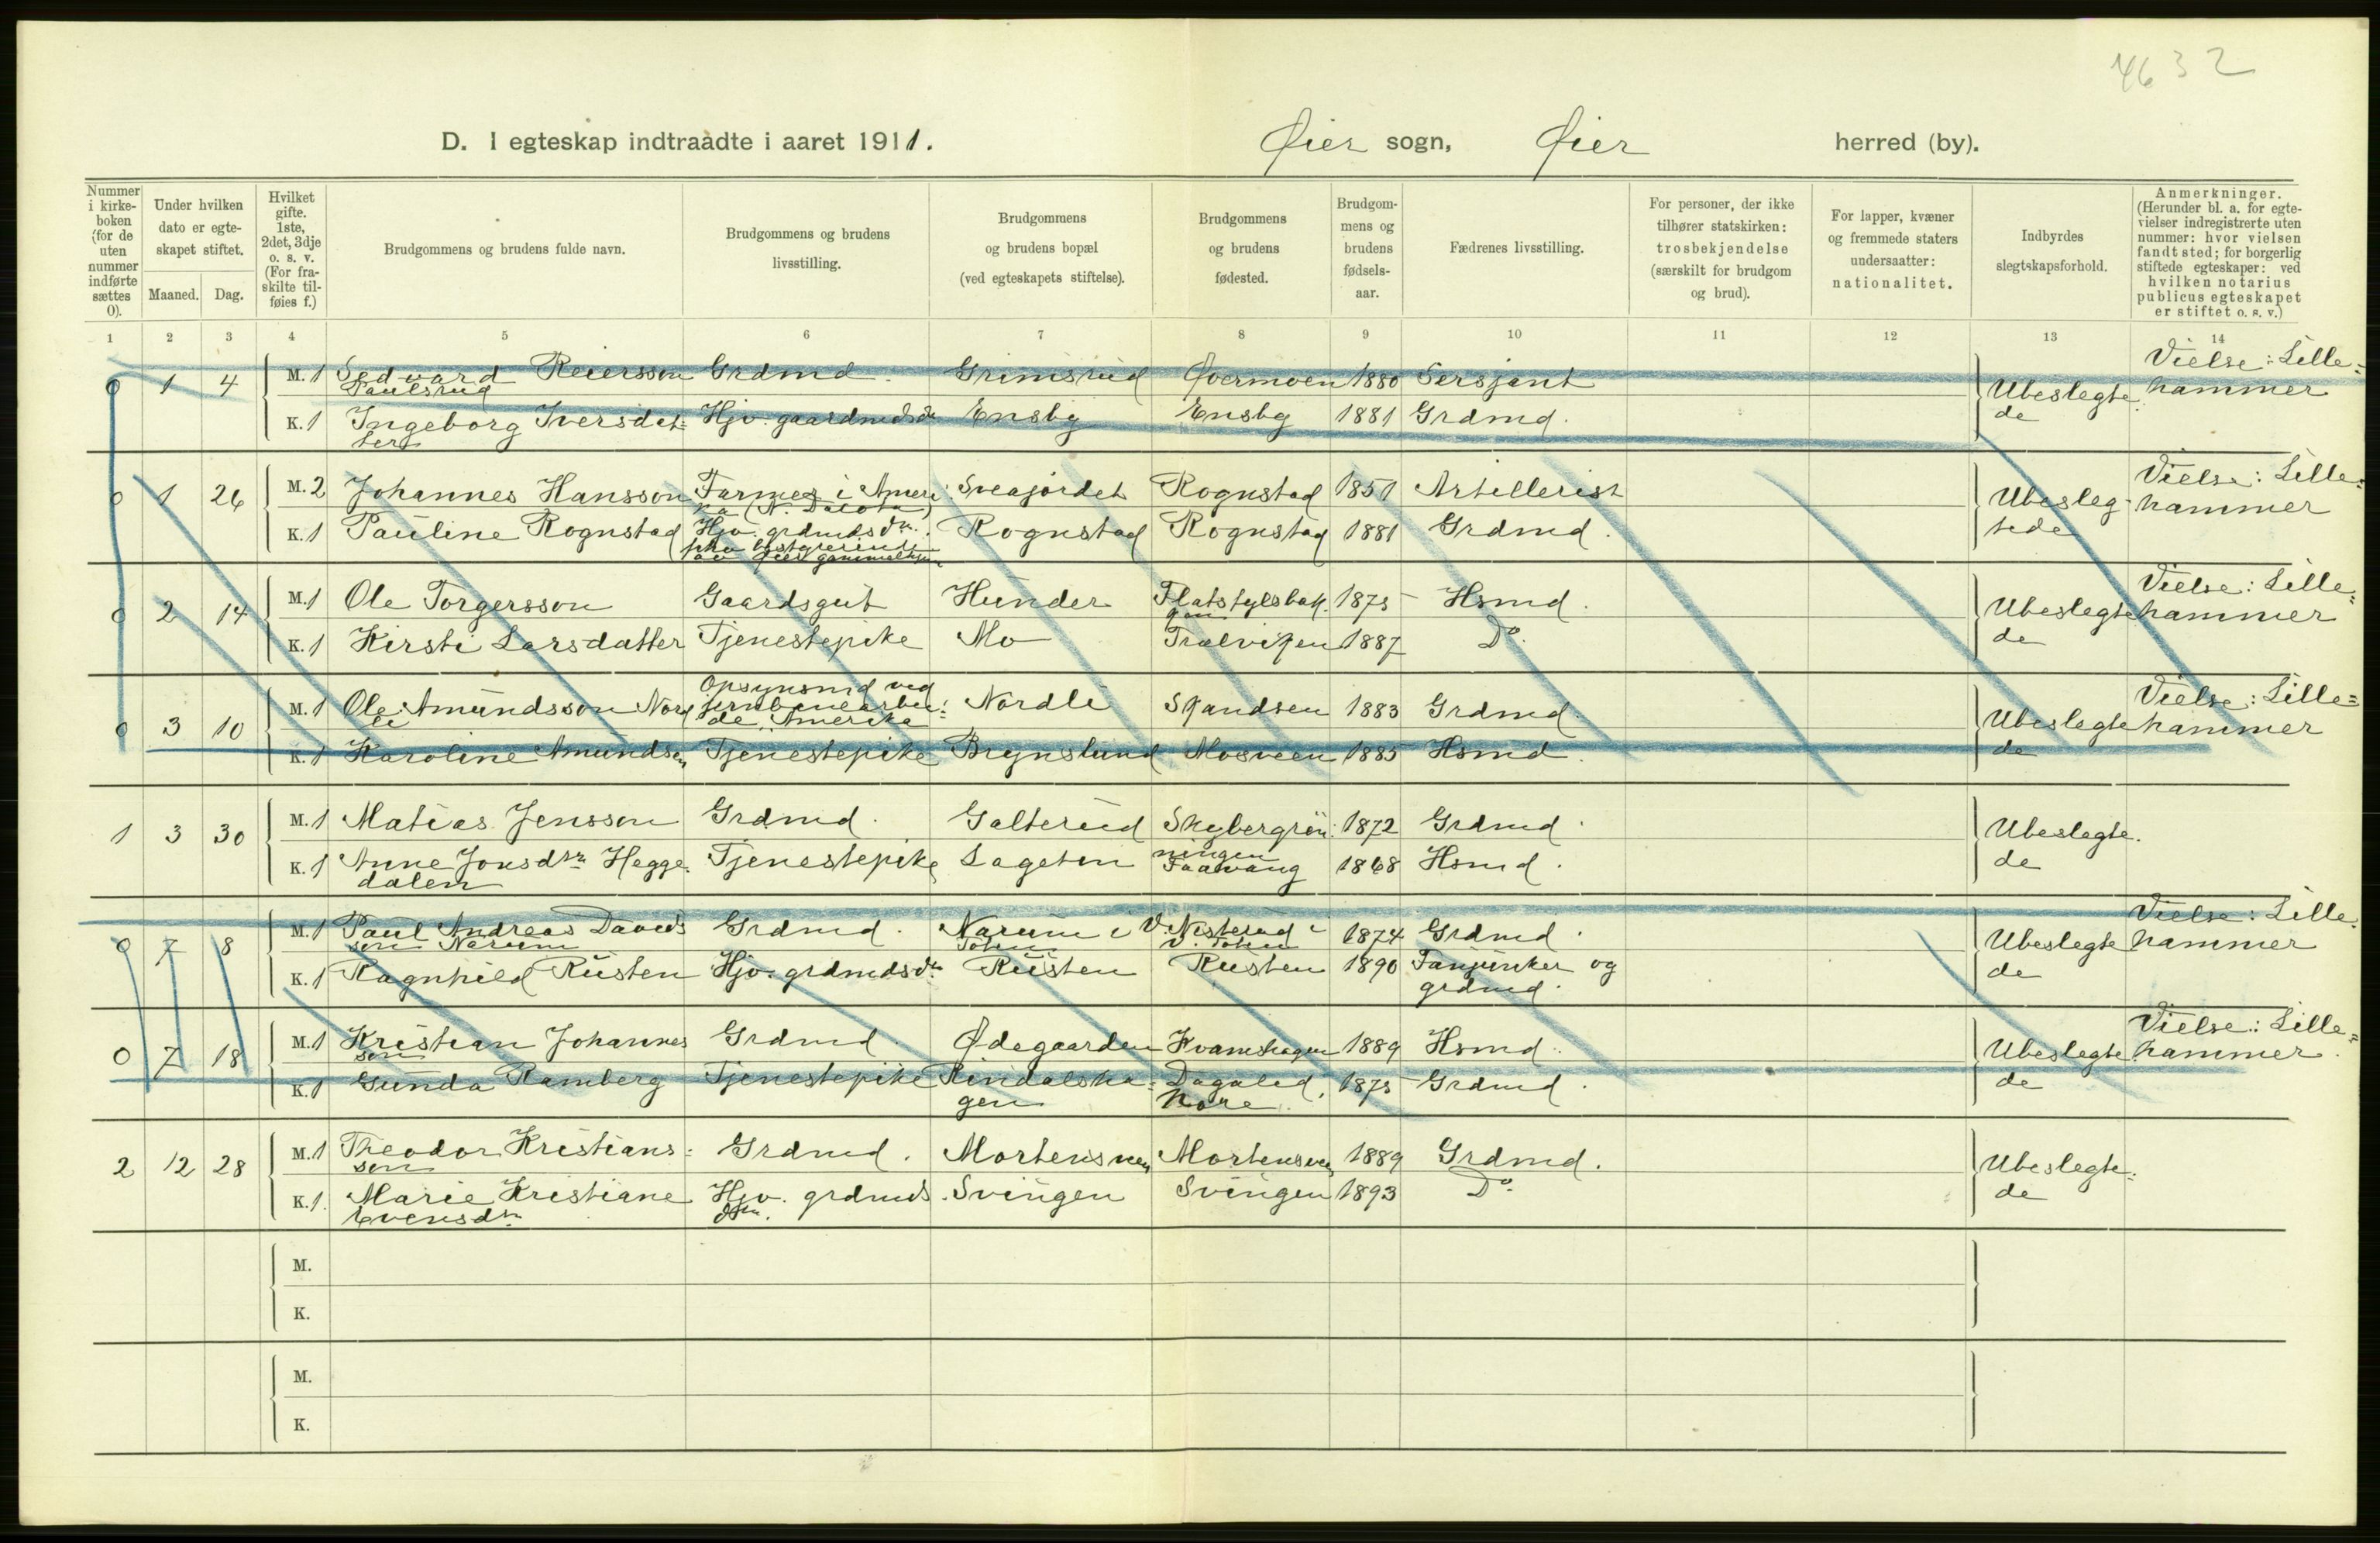 4632
D. I egteskap indtraadte i aaret 1911. Øier sogn, Øier herred (by).
Nummer i kirke-boken (for de uten nummer indførte sættes 0).
Under hvilken dato er egte-skapet stiftet.
Maaned. Dag.
Hvilket gifte. 1ste, 2det, 3dje o. s. v. (For fra-skilte til-føies f.)
Brudgommens og brudens fulde navn.
Brudgommens og brudens livsstilling.
Brudgommens og brudens bopæl (ved egteskapets stiftelse).
Brudgommens og brudens fødested.
Brudgom-mens og brudens fødsels-aar.
Fædrenes livsstilling.
For personer, der ikke tilhører statskirken: trosbekjendelse (særskilt for brudgom og brud).
For lapper, kvæner og fremmede staters undersaatter: nationalitet.
Indbyrdes slegtskapsforhold.
Anmerkninger. (Herunder bl. a. for egte-vielser indregistrerte uten nummer: hvor vielsen fandt sted; for borgerlig stiftede egteskaper: ved hvilken notarius publicus egteskapet er stiftet o. s. v.)
1 2 3 4 5 6 7 8 9 10 11 12 13 14
0 1 4 M. 1 Sedvard Reiersson Paulsrud Grdmd. Grimsrud Øvermoen 1880 Sersjant Ubeslegte-de Vielse: Lille-hammer
K. 1 Ingeborg Iversdat-ter Hjv. gaardmdsdr Ensby Ensby 1881 Grdmd.
0 1 26 M. 2 Johannes Hansson Farmer i Ameri-ka (N. Dacota) Sveajordet Rognstad 1851 Artillerist Ubesleg-tede Vielse: Lille-hammer
K. 1 Pauline Rognstad Hjv. grdmdsdtr. Rognstad Rognstad 1881 Grdmd.
0 2 14 M. 1 Ole Torgersson Gaardsgut Hunder Flatstylsbak. 1875 Hsmd. Ubeslegte-de Vielse: Lille-hammer
K. 1 Kirsti Larsdatter Tjenestepike Mo Trælviken 1887 Do.
0 3 10 M. 1 Ole Amundsson Nord-li Opsynsmd ved jernbanearbei-de, Amerika Nordli Skandsen 1883 Grdmd. Ubeslegte-de Vielse: Lille-hammer
K. 1 Karoline Amundsen Tjenestepike Brynslund Mosveen 1885 Hsmd.
1 3 30 M. 1 Matias Jensson Grdmd. Galterud Skybergrøn-ningen 1872 Grdmd. Ubeslegte-de
K. 1 Anne Jonsdtr Hegge-dalen Tjenestepike Lageten Faavang 1868 Hsmd.
0 7 8 M. 1 Paul Andreas Davids-son Narum Grdmd. Narum i V. Toten Nisterud i V. Toten 1874 Grdmd. Ubeslegte-de Vielse: Lille-hammer
K. 1 Ragnhild Rusten Hjv. grdmdsdtr Rusten Rusten 1890 Fanjunker og grdmd.
0 7 18 M. 1 Kristian Johannes-son Grdmd. Ødegaarden Kvamshagen 1889 Hsmd. Ubeslegte-de Vielse: Lille-hammer.
K. 1 Gunda Ramberg Tjenestepike Rindalsha-gen Dagalid, Nore 1875 Grdmd.
2 12 28 M. 1 Theodor Kristians-son Grdmd. Mortensven Mortensven 1889 Grdmd. Ubeslegte-de
K. 1. Marie Kristiane Evensdtr Hjv. grdmds-dtr. Svingen Svingen 1893 Do.
M.
K.
M.
K.